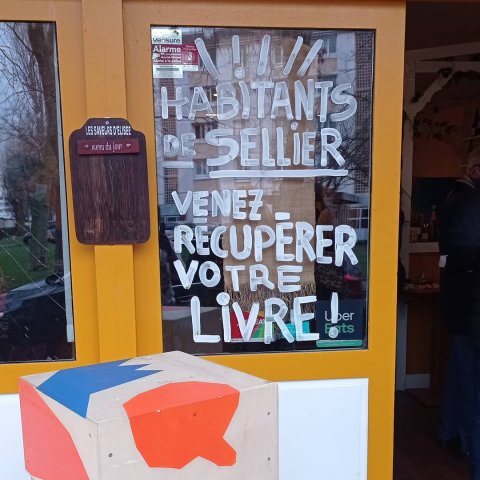 verisure
Alarme
LES SAVEURS D'ELISES
menu du jour
HABITANTS
DE SELLIER
VENEZ
RÉCUPÉRER
VOTRE
LIVRE !
Uber
Eats